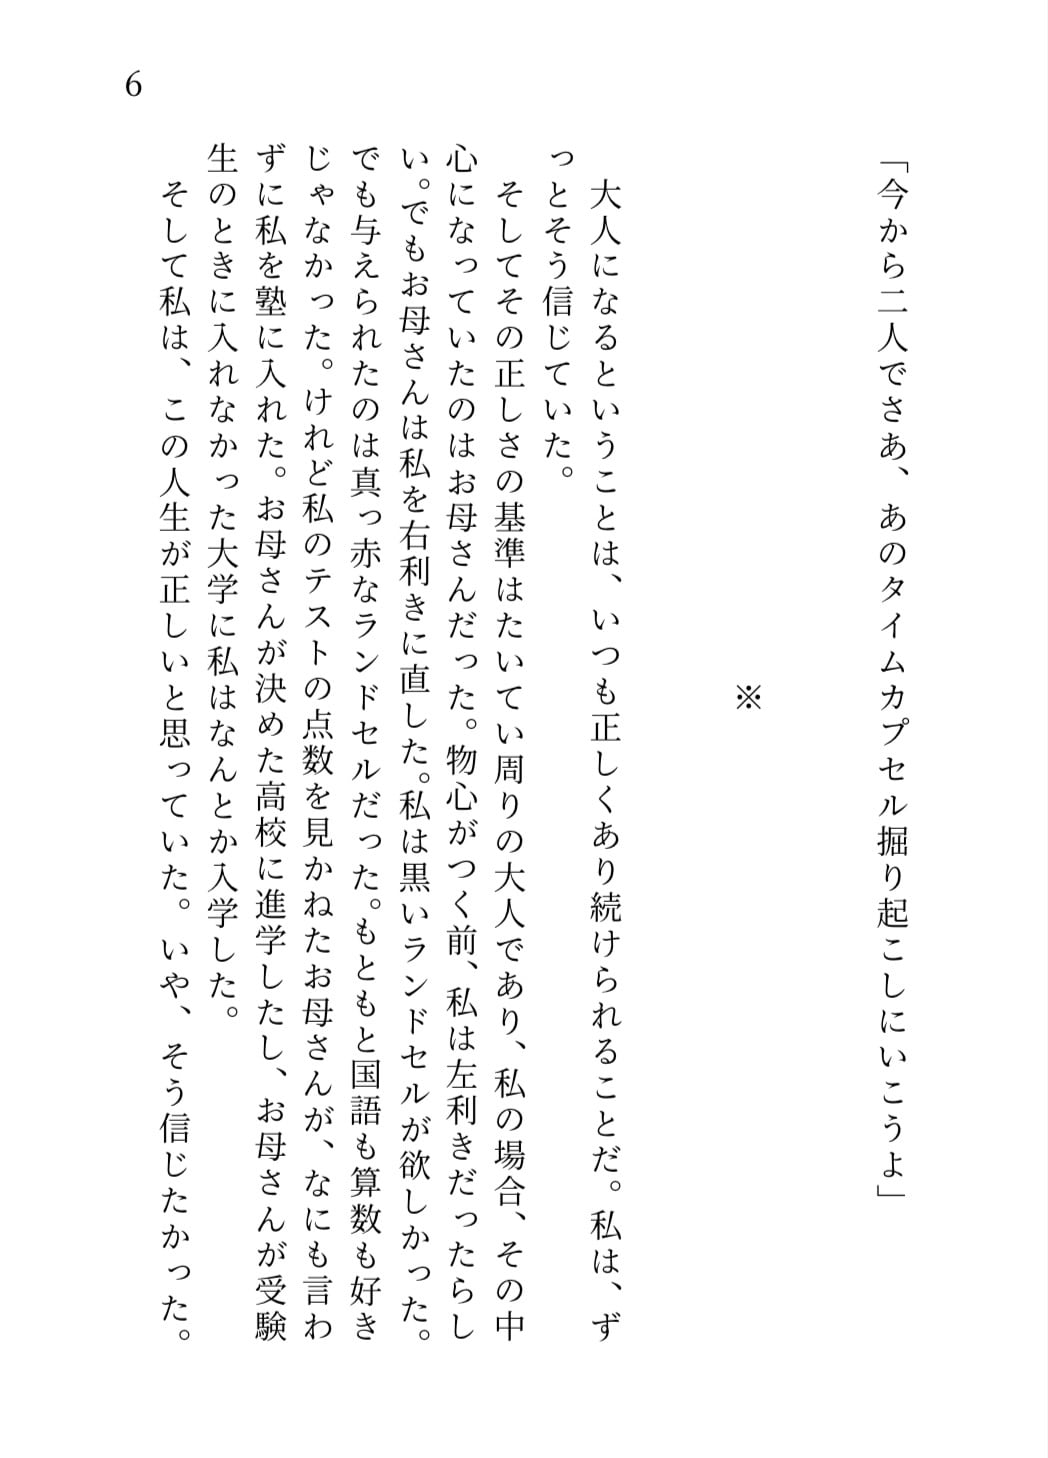 6
「今から二人でさあ、あのタイムカプセル掘り起こしにいこうよ」
※
　大人になるということは、いつも正しくあり続けられることだ。私は、ず
っとそう信じていた。
　そしてその正しさの基準はたいてい周りの大人であり、私の場合、その中
心になっていたのはお母さんだった。物心がつく前、私は左利きだったらし
い。でもお母さんは私を右利きに直した。私は黒いランドセルが欲しかった。
でも与えられたのは真っ赤なランドセルだった。もともと国語も算数も好き
じゃなかった。けれど私のテストの点数を見かねたお母さんが、なにも言わ
ずに私を塾に入れた。お母さんが決めた高校に進学したし、お母さんが受験
生のときに入れなかった大学に私はなんとか入学した。
　そして私は、この人生が正しいと思っていた。いや、そう信じたかった。